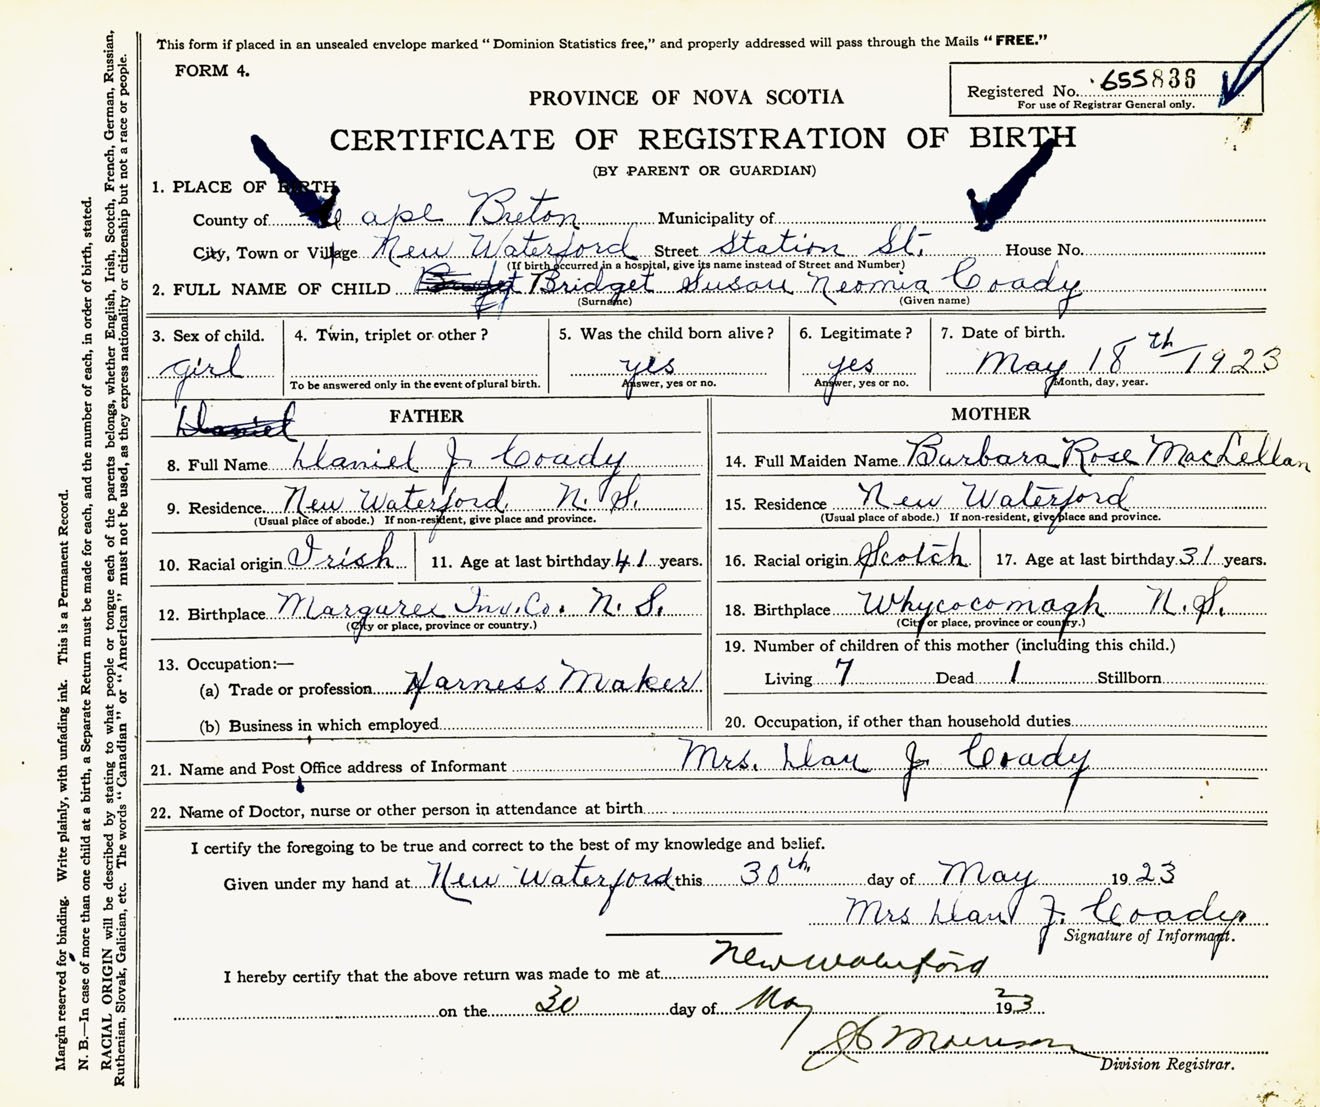 This form if placed in an unsealed envelope marked "Dominion Statistics free," and properly addressed will pass through the Mails "FREE."
FORM 4.
Registered No. 655836
For use of Registrar General only.
PROVINCE OF NOVA SCOTIA
CERTIFICATE OF REGISTRATION OF BIRTH
(BY PARENT OR GUARDIAN)
1. PLACE OF BIRTH
County of Cape Breton Municipality of
City, Town or Village New Waterford Street Station St. House No.
(If birth occurred in a hospital, give its name instead of Street and Number)
2. FULL NAME OF CHILD Bridget Susan Neomia Coady
(Surname) (Given name)
3. Sex of child. 4. Twin, triplet or other? 5. Was the child born alive? 6. Legitimate? 7. Date of birth.
girl yes yes May 18th 1923
To be answered only in the event of plural birth. Answer, yes or no. Answer, yes or no. Month, day, year.
Daniel FATHER
8. Full Name Daniel J. Coady
9. Residence New Waterford. N. S.
(Usual place of abode.) If non-resident, give place and province.
10. Racial origin Irish 11. Age at last birthday 41 years.
12. Birthplace Margaree Inv. Co. N. S.
(City or place, province or country.)
13. Occupation:—
(a) Trade or profession Harness Maker
(b) Business in which employed
MOTHER
14. Full Maiden Name Barbara Rose MacLellan
15. Residence New Waterford
(Usual place of abode.) If non-resident, give place and province.
16. Racial origin Scotch 17. Age at last birthday 31 years.
18. Birthplace Whycocomagh N. S.
(City or place, province or country.)
19. Number of children of this mother (including this child.)
Living 7 Dead 1 Stillborn
20. Occupation, if other than household duties
21. Name and Post Office address of Informant Mrs. Dan J. Coady
22. Name of Doctor, nurse or other person in attendance at birth
I certify the foregoing to be true and correct to the best of my knowledge and belief.
Given under my hand at New Waterford this 30th day of May 1923
Mrs Dan J. Coady
Signature of Informant.
I hereby certify that the above return was made to me at New Waterford
on the 30 day of May 1923
Morrison
Division Registrar.
Margin reserved for binding. Write plainly, with unfading ink. This is a Permanent Record.
N. B.—In case of more than one child at a birth, a Separate Return must be made for each, and the number of each, in order of birth, stated.
RACIAL ORIGIN will be described by stating to what people or tongue each of the parents belongs, whether English, Irish, Scotch, French, German, Russian,
Ruthenian, Slovak, Galician, etc. The words "Canadian" or "American" must not be used, as they express nationality or citizenship but not a race or people.